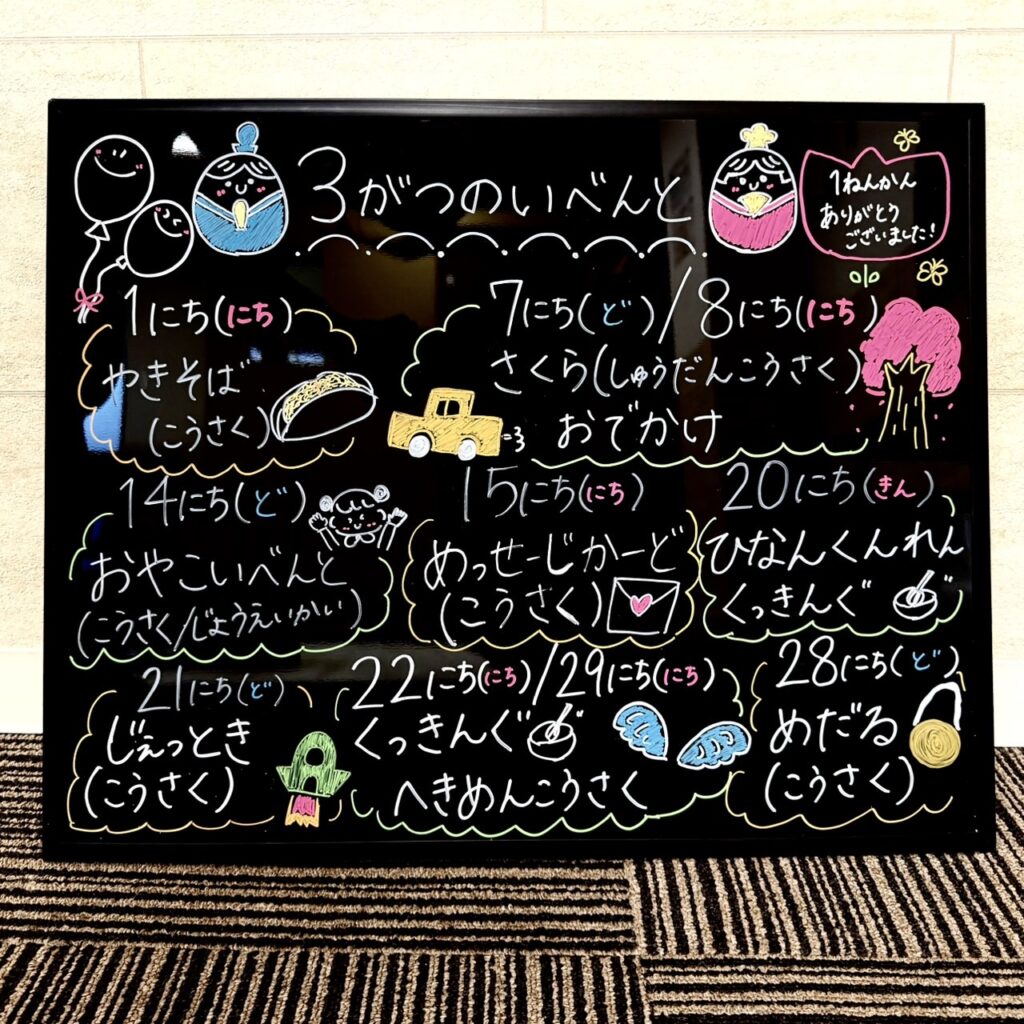 3がつのいべんと
1ねんかん
ありがとう
ございました!
1にち(にち)
やきそば
(こうさく)
7にち(ど)/8にち(にち)
さくら(しゅうだんこうさく)
おでかけ
14にち(ど)
おやこいべんと
(こうさく/じょうえいかい)
15にち(にち)
めっせーじかーど
(こうさく)
20にち(きん)
ひなんくんれん
くっきんぐ
21にち(ど)
じぇっとき
(こうさく)
22にち(にち)/29にち(にち)
くっきんぐ
へきめんこうさく
28にち(ど)
めだる
(こうさく)